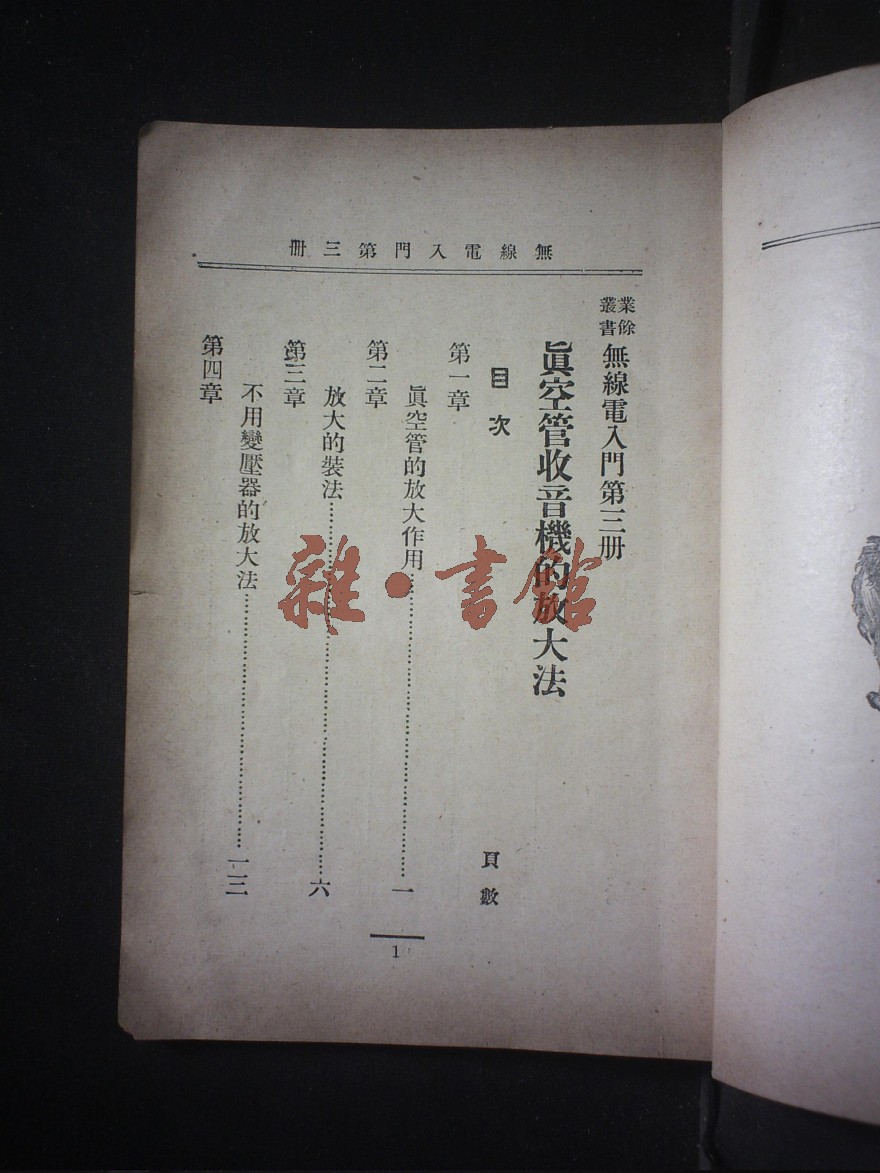 無線電入門第三冊
業餘叢書 無線電入門第三册
眞空管收音機的放大法
目次 頁數
第一章
眞空管的放大作用……一
第二章
放大的裝法……六
第三章
不用變壓器的放大法……一三
第四章
1
雜·書館